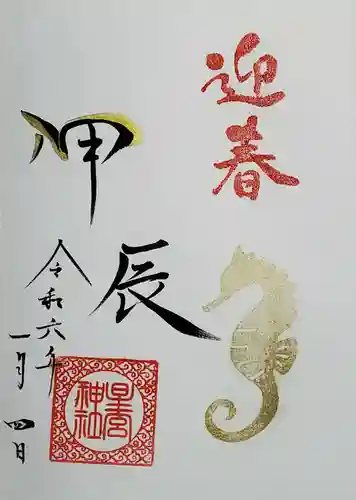 迎春
甲辰
令和六年
一月四日
日雲
神社